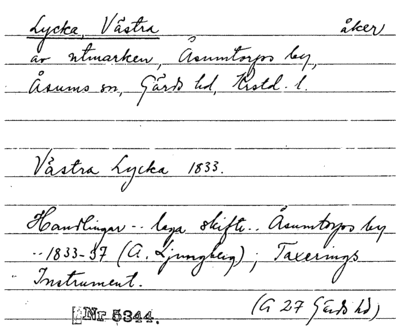 Lycka, Västra åker
av utmarken, Åsumtorps by,
Åsums sn, Gärds hd, Krstd. l.
Västra Lycka 1833.
Handlingar -- laga skifte .. Åsumtorps by
-- 1833-37 (A. Ljungberg); Taxerings
Instrument.
(A 27 Gärds hd)
Nr 5344.